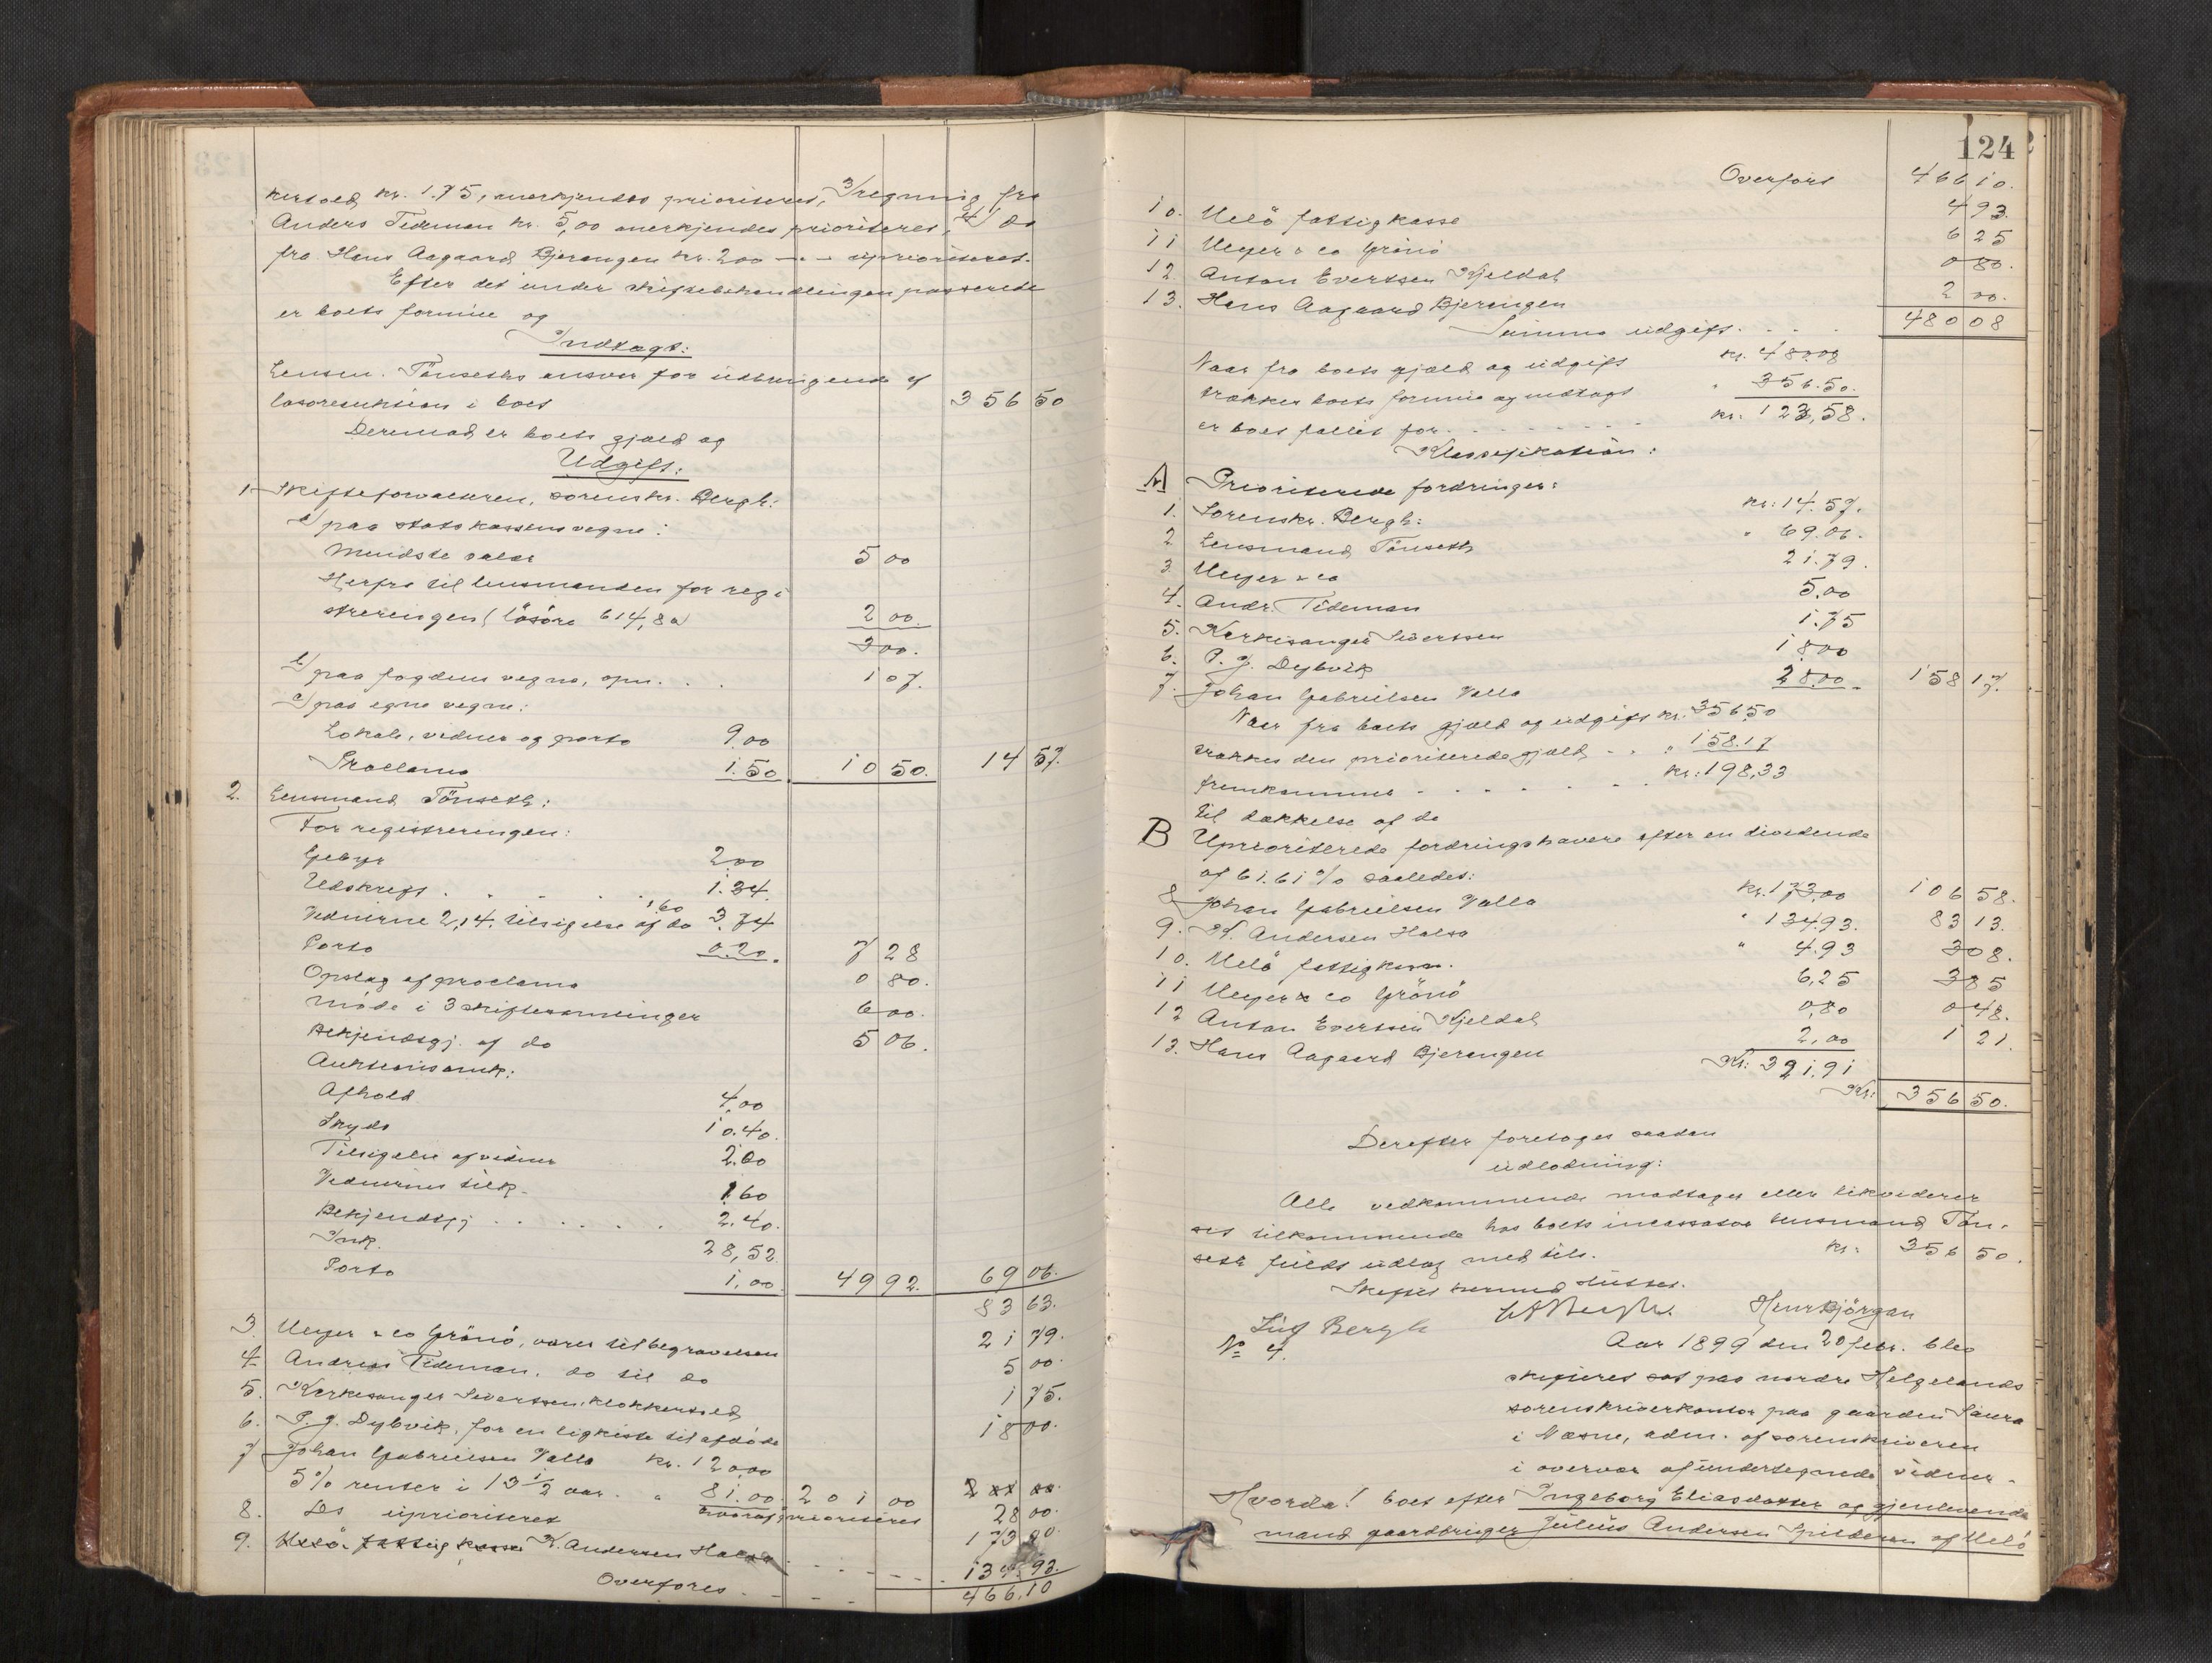 kersold kr. 1.75, anerkjendes prioriteret, 3/ regning fra
Anders Tideman kr. 5,00 anerkjendes prioriteret, 4/ do
fra Hans Aagaard Bjerangen kr. 200 —"— uprioriteret.
Efter det under skiftebehandlingen passerede
er boets formue og
Indtægt:
Lensm. Tönseths ansvar for udbringende af
lösöreauktion i boet 356 50
Derimod er boets gjæld og
Udgift:
1 Skifteforvalteren, sorenskr. Bergh:
a/ paa statskassens vegne:
Mindste salær 5 00
Herfra til lensmanden for regi
streringen (lösöre 614,80) 2 00
300.
b/ paa fogdens vegne, opn. . . 1 07.
c/ paa egne vegne:
Lokale, vidner og porto 9.00
Proclama 1.50 10 50. 14 57.
2. Lensmand Tönseth:
For registreringen:
Gebyr 200
Udskrift . . . . . 1.34.
1,60
Vidnerne 2,14, tilsigelse af do 3.74
Porto 0.20. 7 28
Opslag af proclama 0 80.
Möde i 3 skiftesamlinger 6 00.
Bekjendtgj. af do 5 06.
Auktionsomk:
Afhold 4,00
Skyds 10.40.
Tilsigelse af vidner 2.00
Vidnernes tilk. 1.60
Bekjendtgj . . . . . . 2.40.
Ink. 28,52
Porto 1,00 49 92. 69 06.
83 63.
3. Meyer & co Grönö, varer til begravelsen 21 79.
4. Andreas Tideman, do til do 5 00.
5. Kirkesanger Sivertsen, klokkersold 1 75.
6. P. J. Dybvik, for en ligkiste til afdöde 18 00.
7 Johan Gabrielsen Valla kr. 120,00
5% renter i 13 1/2 aar. . " 81.00 201 00
hvoraf prioriteret 28 00.
8. Do uprioriteret 173 00
9. Melö fattigkasse K. Andersen Halsa . . . . . 134,93.
Overföres . - - - 466,10
124
Overfört 466 10.
10. Melö fattigkasse 4 93.
11 Meyer & co Grönö 6 25
12. Anton Evertsen Kjeldal 0 80.
13. Hans Aagaard Bjerangen 2 00.
Summa udgift. . . . 480 08
Naar fra boets gjæld og udgift kr. 480,08
trækkes boets formue og indtægt " 356.50.
er boet fallit for . - - - - - - - kr. 123,58.
Klassifikation:
A Prioriterede fordringer:
1. Sorenskr. Bergh: kr: 14.57.
2 Lensmand Tönseth " 69.06.
3. Meyer & co 21.79.
4. Andr. Tideman 5.00
5. Kirkesanger Sivertsen 1.75
6. P. J. Dybvik 18,00
7. Johan Gabrielsen Valla 28.00 158 17.
Naar fra boets gjæld og udgift kr. 356,50
trækkes den prioriterede gjæld - . " 158.17
fremkommer - . - . - . - . kr: 198,33
til dækkelse af de
B Uprioriterede fordringshavere efter en dividende
af 61.61% saaledes:
8 Johan Gabrielsen Valla kr. 173,00 106 58.
9. K. Andersen Halsa " 134.93. 83 13.
10. Melö fattigkasse. " 4.93 3 08.
11 Meyer & co Grönö 6,25 3 85
12 Anton Evertsen Kjeldal 0,80 0 48.
13. Hans Aagaard Bjerangen 2,00 1 21.
Kr: 321.91
Kr: 356 50.
Derefter foretoges saadan
udlodning:
Alle vedkommende modtager eller likviderer
sit tilkommende hos boets incassator lensmand Tön-
seth fuldt udlag med tils. kr: 356 50.
Skiftet hermed sluttet.
Lug Bergh Henr Björgan
No 4. Aar 1899 den 20 febr. blev
skifteret sat paa nordre Helgelands
sorenskriverkontor paa gaarden Saura
i Nesne, adm. af sorenskriveren
i overvær af undertegnede vidner.
Hvorda! boet efter Ingeborg Eliasdatter og gjenlevende
mand gaardbruger Julius Andersen Spilderen af Melö